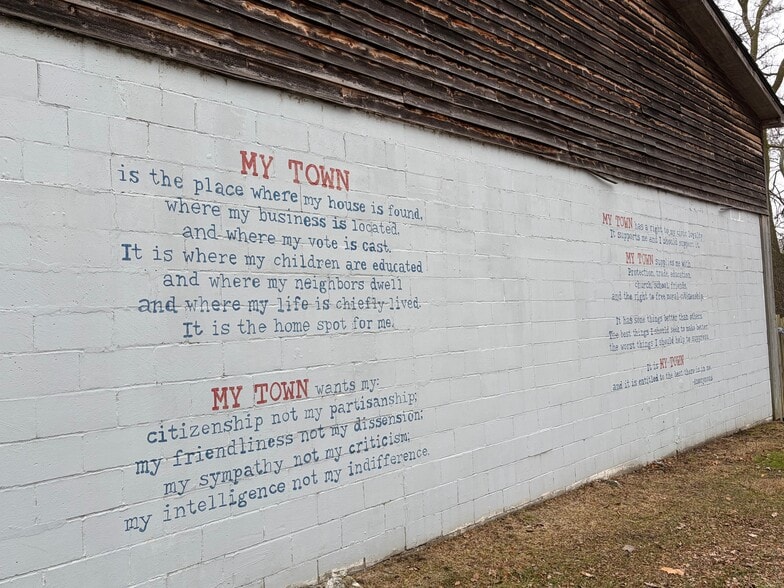 MY TOWN
is the place where my house is found,
where my business is located,
and where my vote is cast.
It is where my children are educated
and where my neighbors dwell
and where my life is chiefly lived.
It is the home spot for me.
MY TOWN wants my:
citizenship not my partisanship;
my friendliness not my dissension;
my sympathy not my criticism;
my intelligence not my indifference.
MY TOWN has a right to my civic loyalty.
It supports me and I should support it.
MY TOWN supplies me with
Protection, trade, education,
church, school, friends,
and the right to free moral citizenship
It has some things better than others
The best things I should seek to make better
the worst things I should help to suppress
It is MY TOWN
and it is entitled to the best there is in me
-anonymous